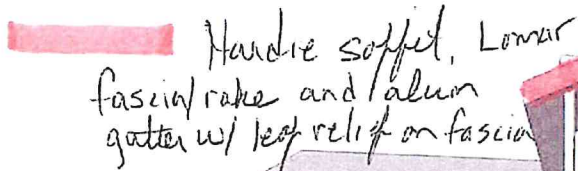 Hardie soffit, Lomar
fascia/rake and alum
gutter w/ leaf relief on fascia